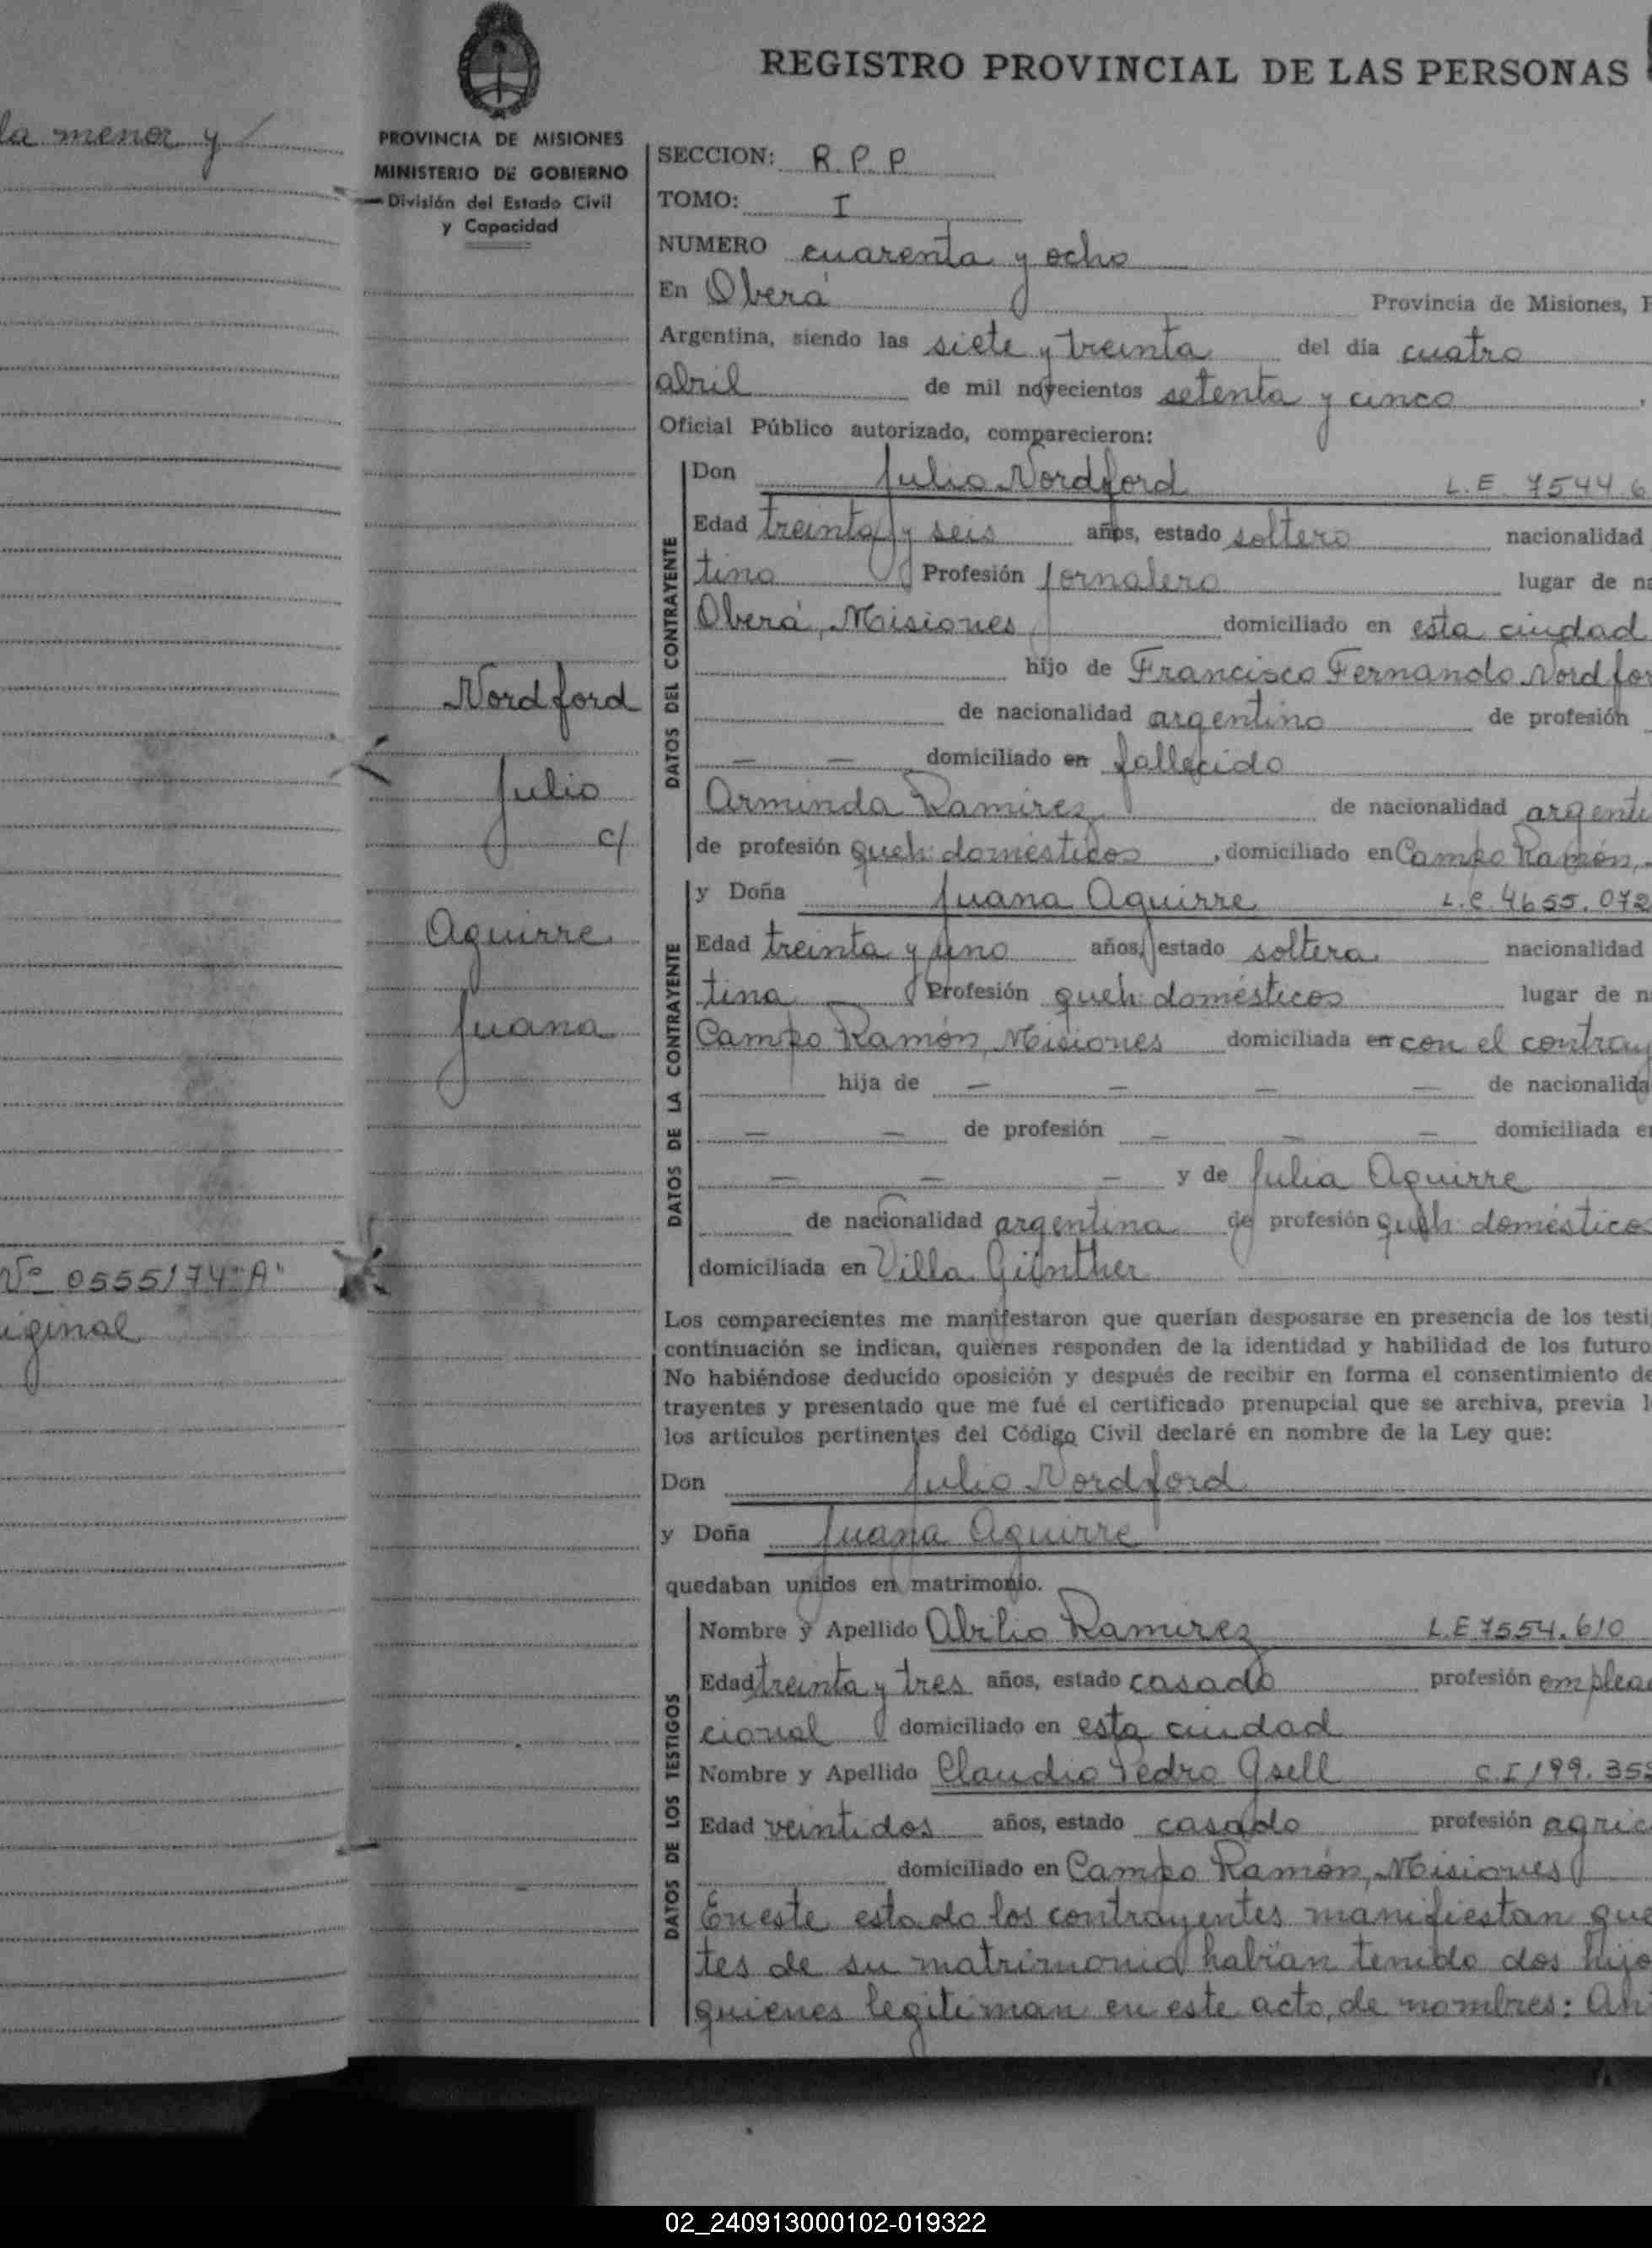 la menor y /
Nº 0555/74 "A"
iginal
PROVINCIA DE MISIONES
MINISTERIO DE GOBIERNO
División del Estado Civil
y Capacidad
Nordford
Julio
c/
Aguirre
Juana
REGISTRO PROVINCIAL DE LAS PERSONAS
SECCION: R.P.P
TOMO: I
NUMERO cuarenta y ocho
En Oberá Provincia de Misiones, R
Argentina, siendo las siete y treinta del día cuatro
abril de mil novecientos setenta y cinco
Oficial Público autorizado, comparecieron:
DATOS DEL CONTRAYENTE
Don Julio Nordford L.E. 7544.6
Edad treinta y seis años, estado soltero nacionalidad
tino Profesión jornalero lugar de na
Oberá, Misiones domiciliado en esta ciudad
hijo de Francisco Fernando Nordfor
de nacionalidad argentino de profesión
— — domiciliado en fallecido
Arminda Ramirez de nacionalidad argenti
de profesión queh. domésticos, domiciliado en Campo Ramón,
DATOS DE LA CONTRAYENTE
y Doña Juana Aguirre L.C. 4655.072
Edad treinta y uno años, estado soltera nacionalidad
tina Profesión queh. domésticos lugar de n
Campo Ramón, Misiones domiciliada en con el contray
hija de — — — — de nacionalida
— — de profesión — — — domiciliada en
— — — y de Julia Aguirre
de nacionalidad argentina de profesión queh. domésticos
domiciliada en Villa Günther
Los comparecientes me manifestaron que querían desposarse en presencia de los testi
continuación se indican, quiénes responden de la identidad y habilidad de los futuro
No habiéndose deducido oposición y después de recibir en forma el consentimiento de
trayentes y presentado que me fué el certificado prenupcial que se archiva, previa l
los artículos pertinentes del Código Civil declaré en nombre de la Ley que:
Don Julio Nordford
y Doña Juana Aguirre
quedaban unidos en matrimonio.
DATOS DE LOS TESTIGOS
Nombre y Apellido Abilio Ramirez L.E 7554.610
Edad treinta y tres años, estado casado profesión emplea
cional domiciliado en esta ciudad
Nombre y Apellido Claudio Pedro Gsell C.I 199.353
Edad veintidos años, estado casado profesión agric
domiciliado en Campo Ramón, Misiones
En este estado los contrayentes manifiestan que
tes de su matrimonio habían tenido dos hijo
quienes legitiman en este acto, de nombres: An
02_240913000102-019322